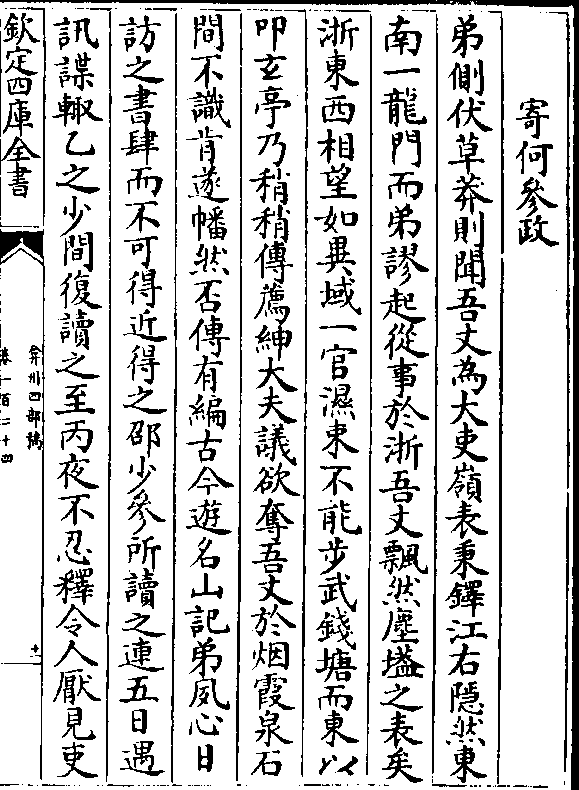 寄何參政
弟側伏草莽則聞吾丈為大吏嶺表秉鐸江右隱然東
南一龍門而弟謬起從事於浙吾丈飄然塵壒之表矣
浙東西相望如異域一官濕束不能步武錢塘而東以
叩玄亭乃稍稍傳薦紳大夫議欲奪吾丈於烟霞泉石
間不識肯遂幡然否傳有編古今遊名山記弟夙心日
訪之書肆而不可得近得之邵少參所讀之連五日遇
訊諜輙乙之少間復讀之至丙夜不忍釋令人厭見吏
欽定四庫全書
弇州四部稿
卷一百二十四
十一